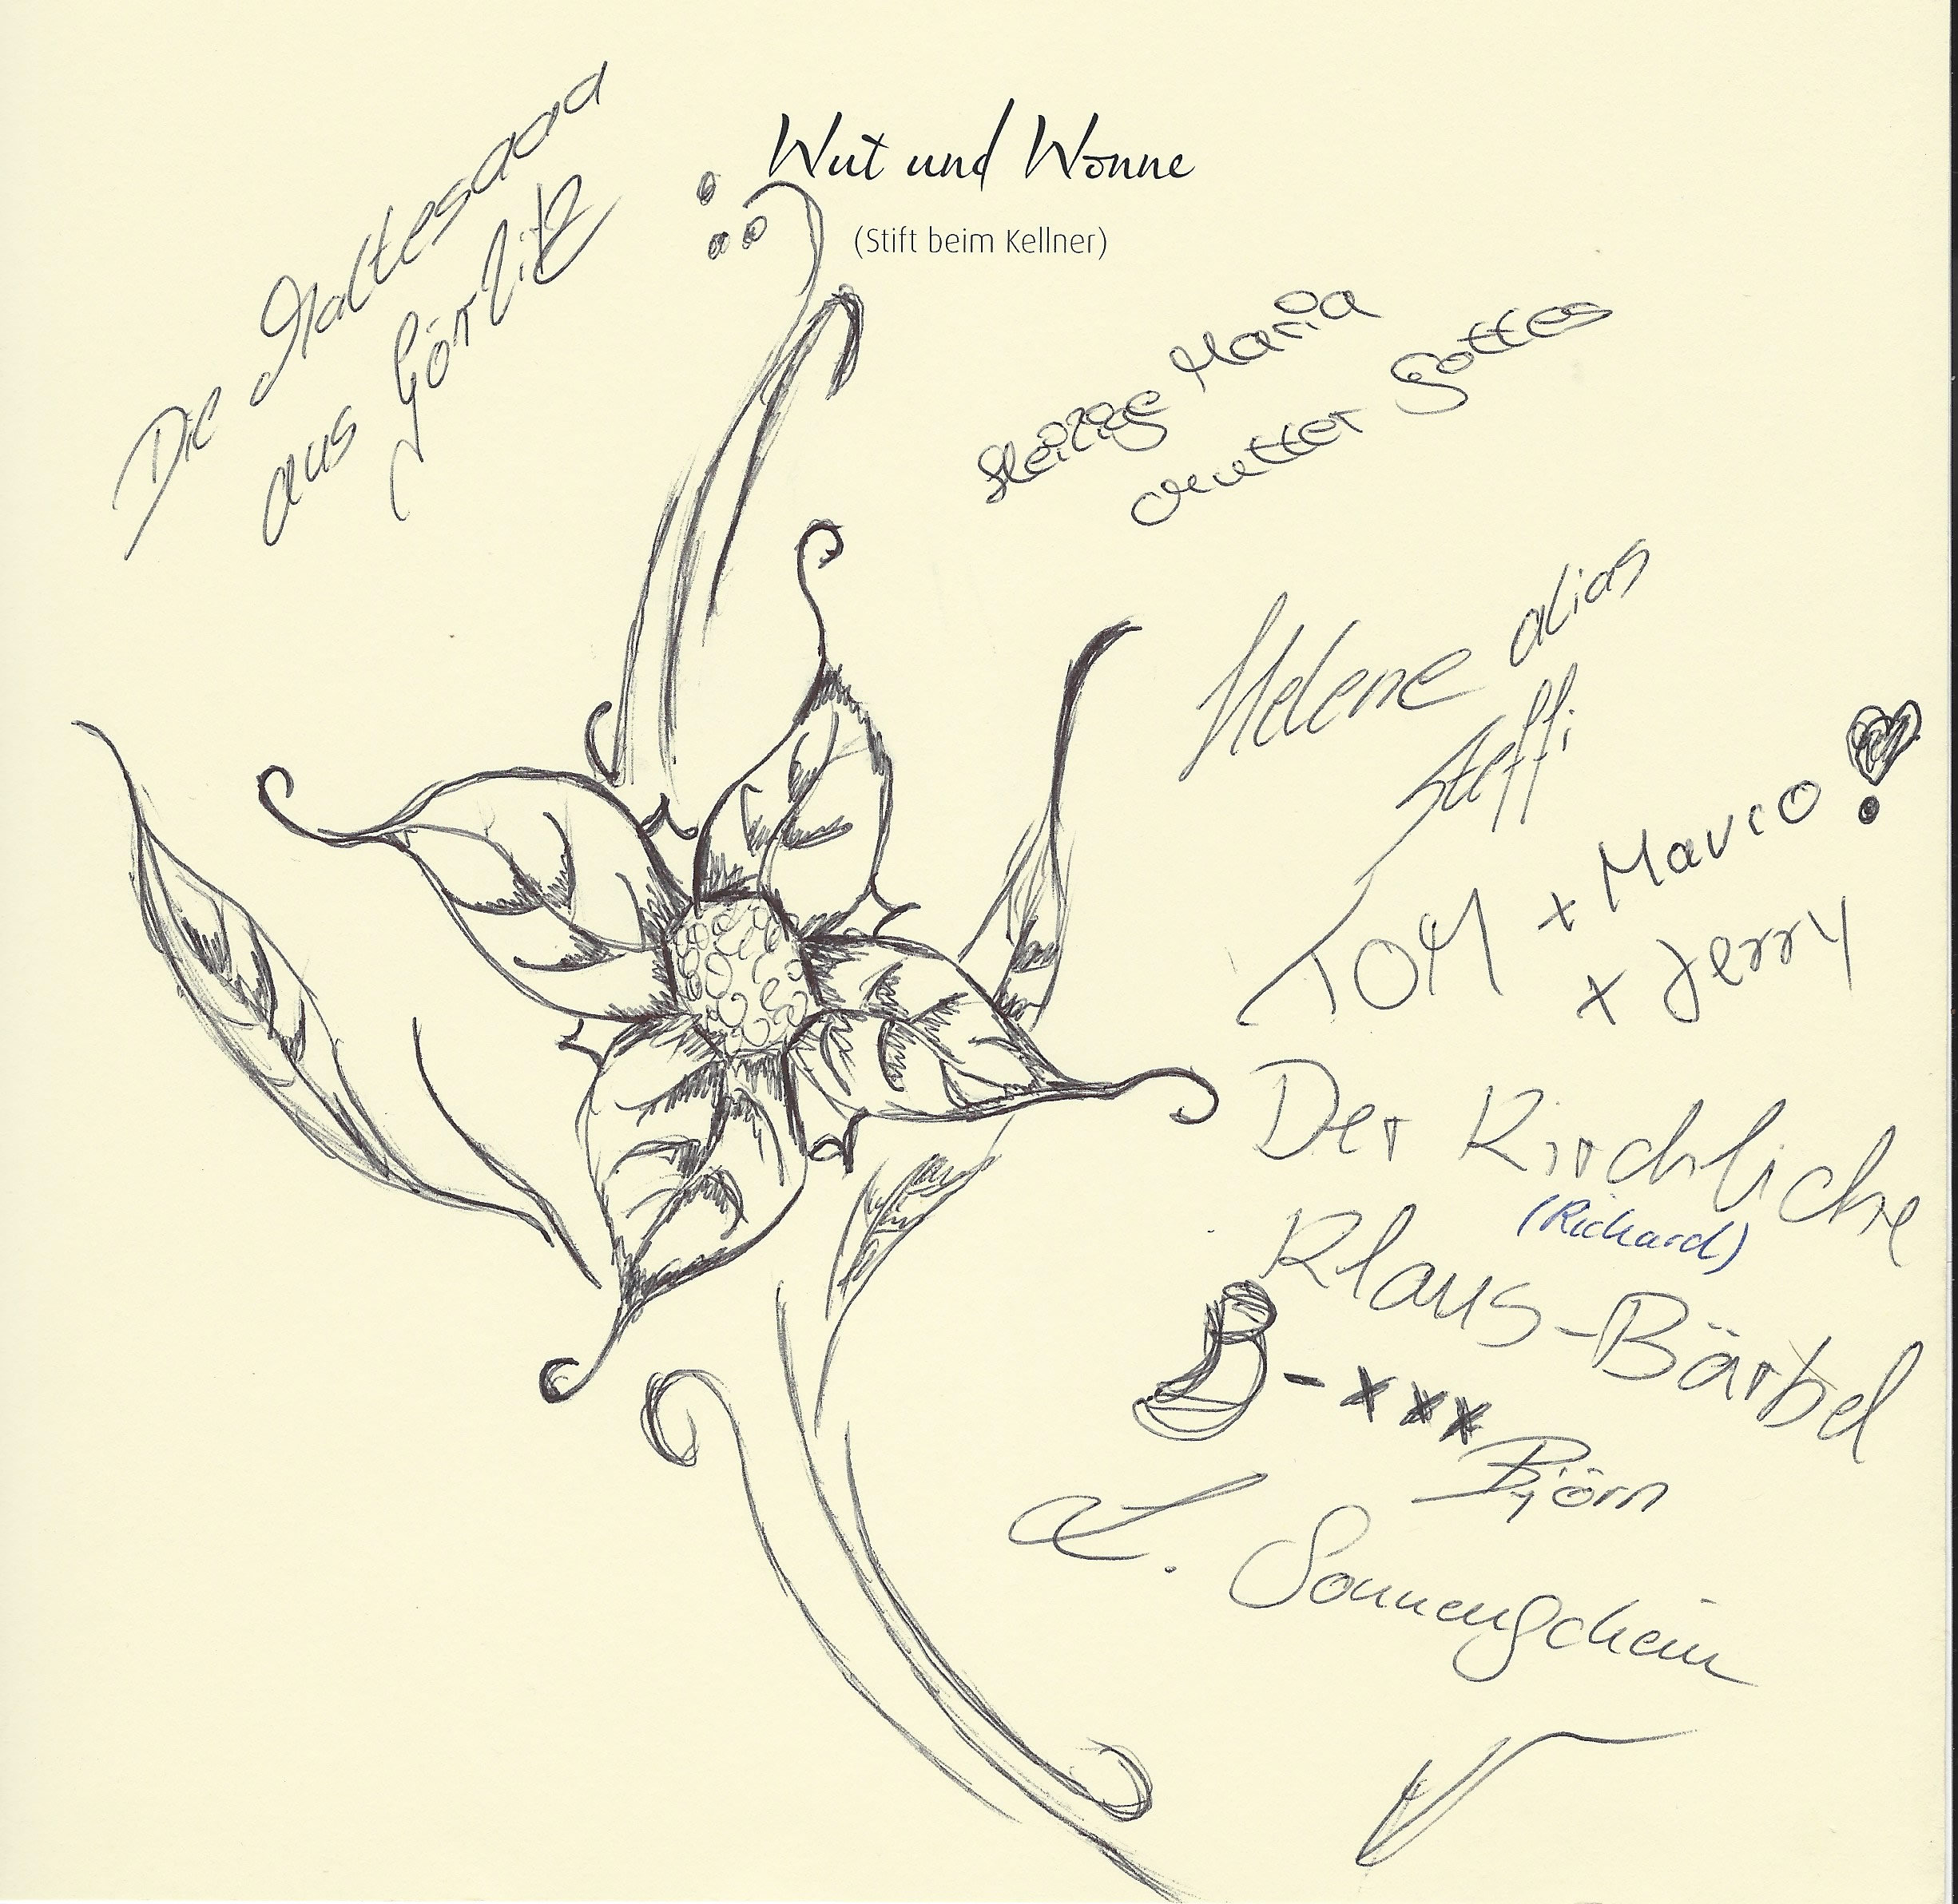 Wut und Wonne
(Stift beim Kellner)
Die Maltesaaa
aus Görlitz
Heilige Maria
Mutter Gottes
Helene alias
Steffi
TOM x Marco
x Jerry
Der Kirchliche
(Richard)
Klaus-Bärbel
- xxx
Björn
L. Sonnenschein